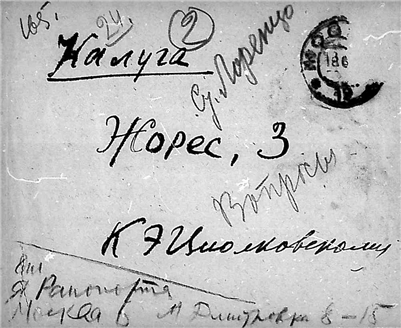 165.
24.
2
Калуга
Су. Лоренцо
МОС
18 6
Жорес, 3
Вопросы
К Э Циолковскому
от
Я Рапопорта
Москва 6 М Дмитровка 8-15